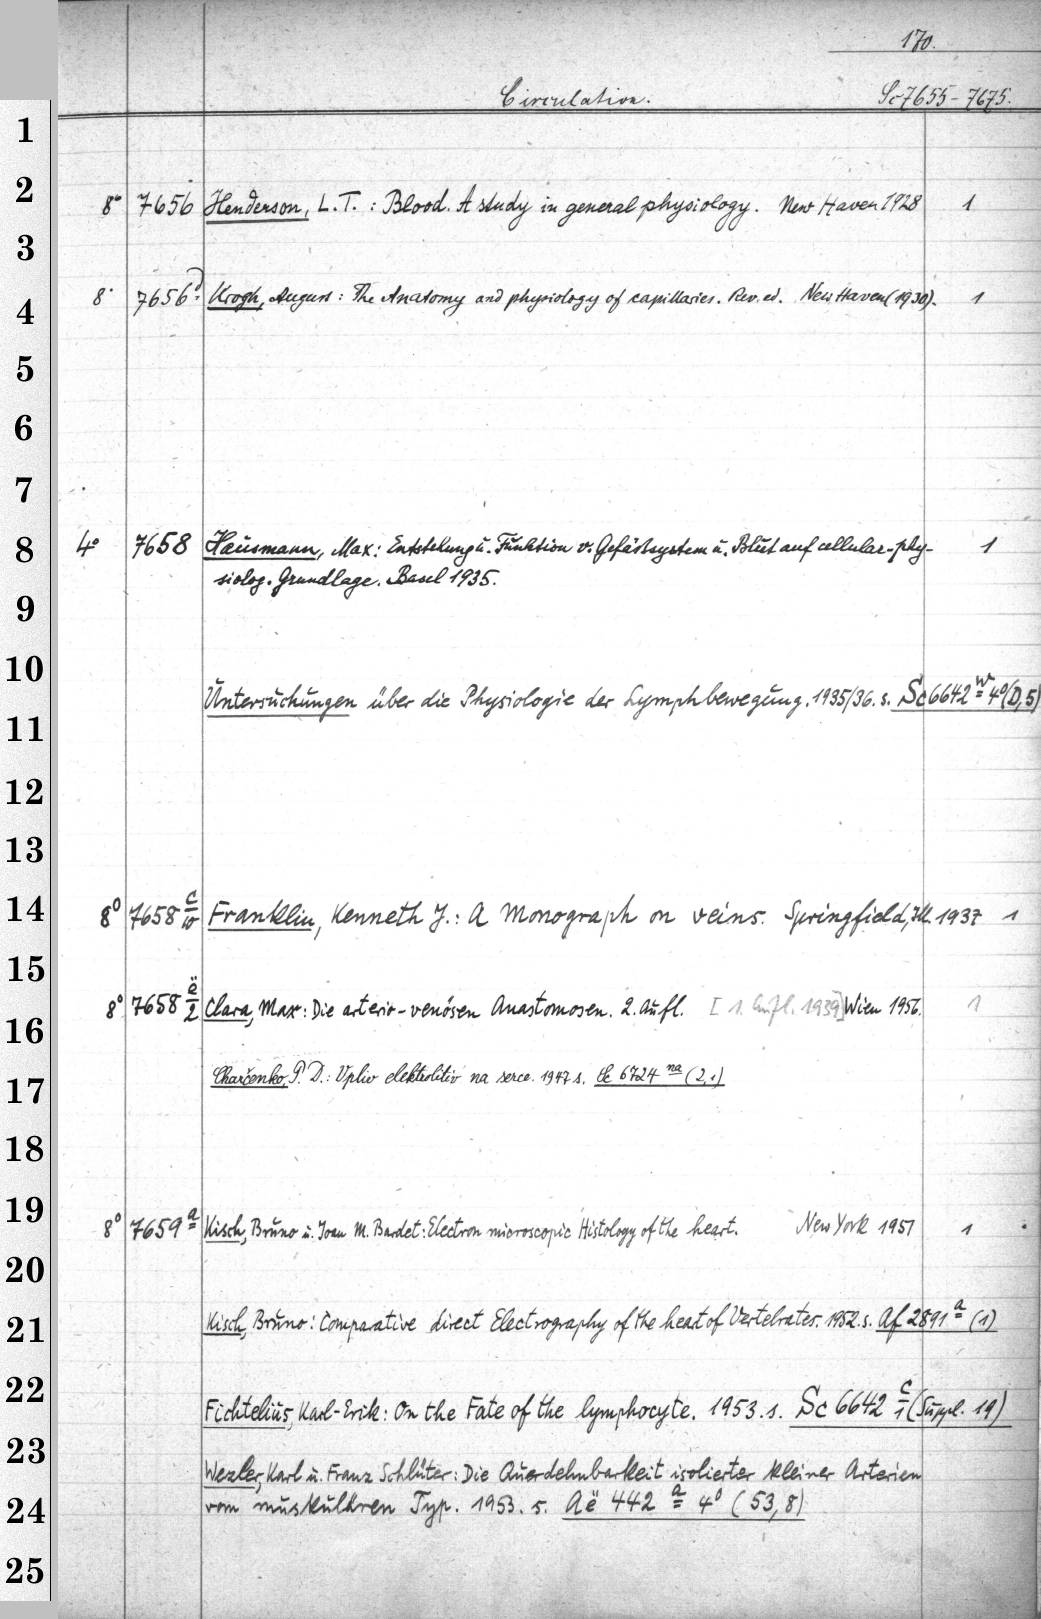 170.
Circulation. Sc 7655 - 7675.
1
2
8° 7656 Henderson, L.T.: Blood. A study in general physiology. New Haven 1928 1
3
8° 7656 Krogh, August: The Anatomy and physiology of capillaries. Rev. ed. New Haven (1930). 1
4
5
6
7
8
4° 7658 Hausmann, Max: Entstehung u. Funktion v. Gefässsystem u. Blut auf cellular-phy-
siolog. Grundlage. Basel 1935. 1
9
10
Untersuchungen über die Physiologie der Lymphbewegung. 1935/36. s. Sc 6642 w 4° (D,5)
11
12
13
14
8° 7658 c/w Franklin, Kenneth J.: A Monograph on veins. Springfield, Ill. 1937 1
15
8° 7658 ë/2 Clara, Max: Die arterio-venösen Anastomosen. 2. Aufl. [1. Aufl. 1939] Wien 1956. 1
16
Charčenko, P. D.: Vpliv elektrolitiv na serce. 1947 s. 6724 na (2,1)
17
18
19
8° 7659 a Kisch, Bruno u. Joan M. Bardet: Electron microscopic Histology of the heart. New York 1951 1
20
Kisch, Bruno: Comparative direct Electrography of the heart of Vertebrates. 1952. s. Af 2891 a (1)
21
22
Fichtelius, Karl-Erik: On the Fate of the lymphocyte. 1953. s. Sc 6642 c/1 (Suppl. 19)
23
Wezler, Karl u. Franz Schlüter: Die Querdehnbarkeit isolierter kleiner Arterien
vom muskulären Typ. 1953. s. Aë 442 a 4° (53,8)
24
25